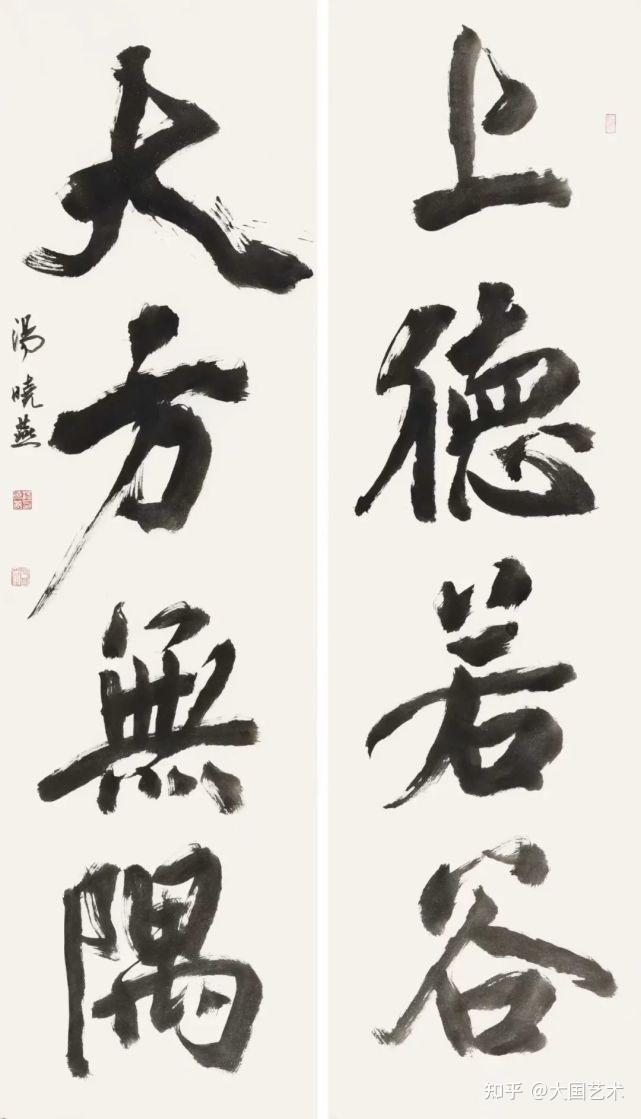 上德若谷
大方無隅
湯曉燕
知乎 @大国艺术